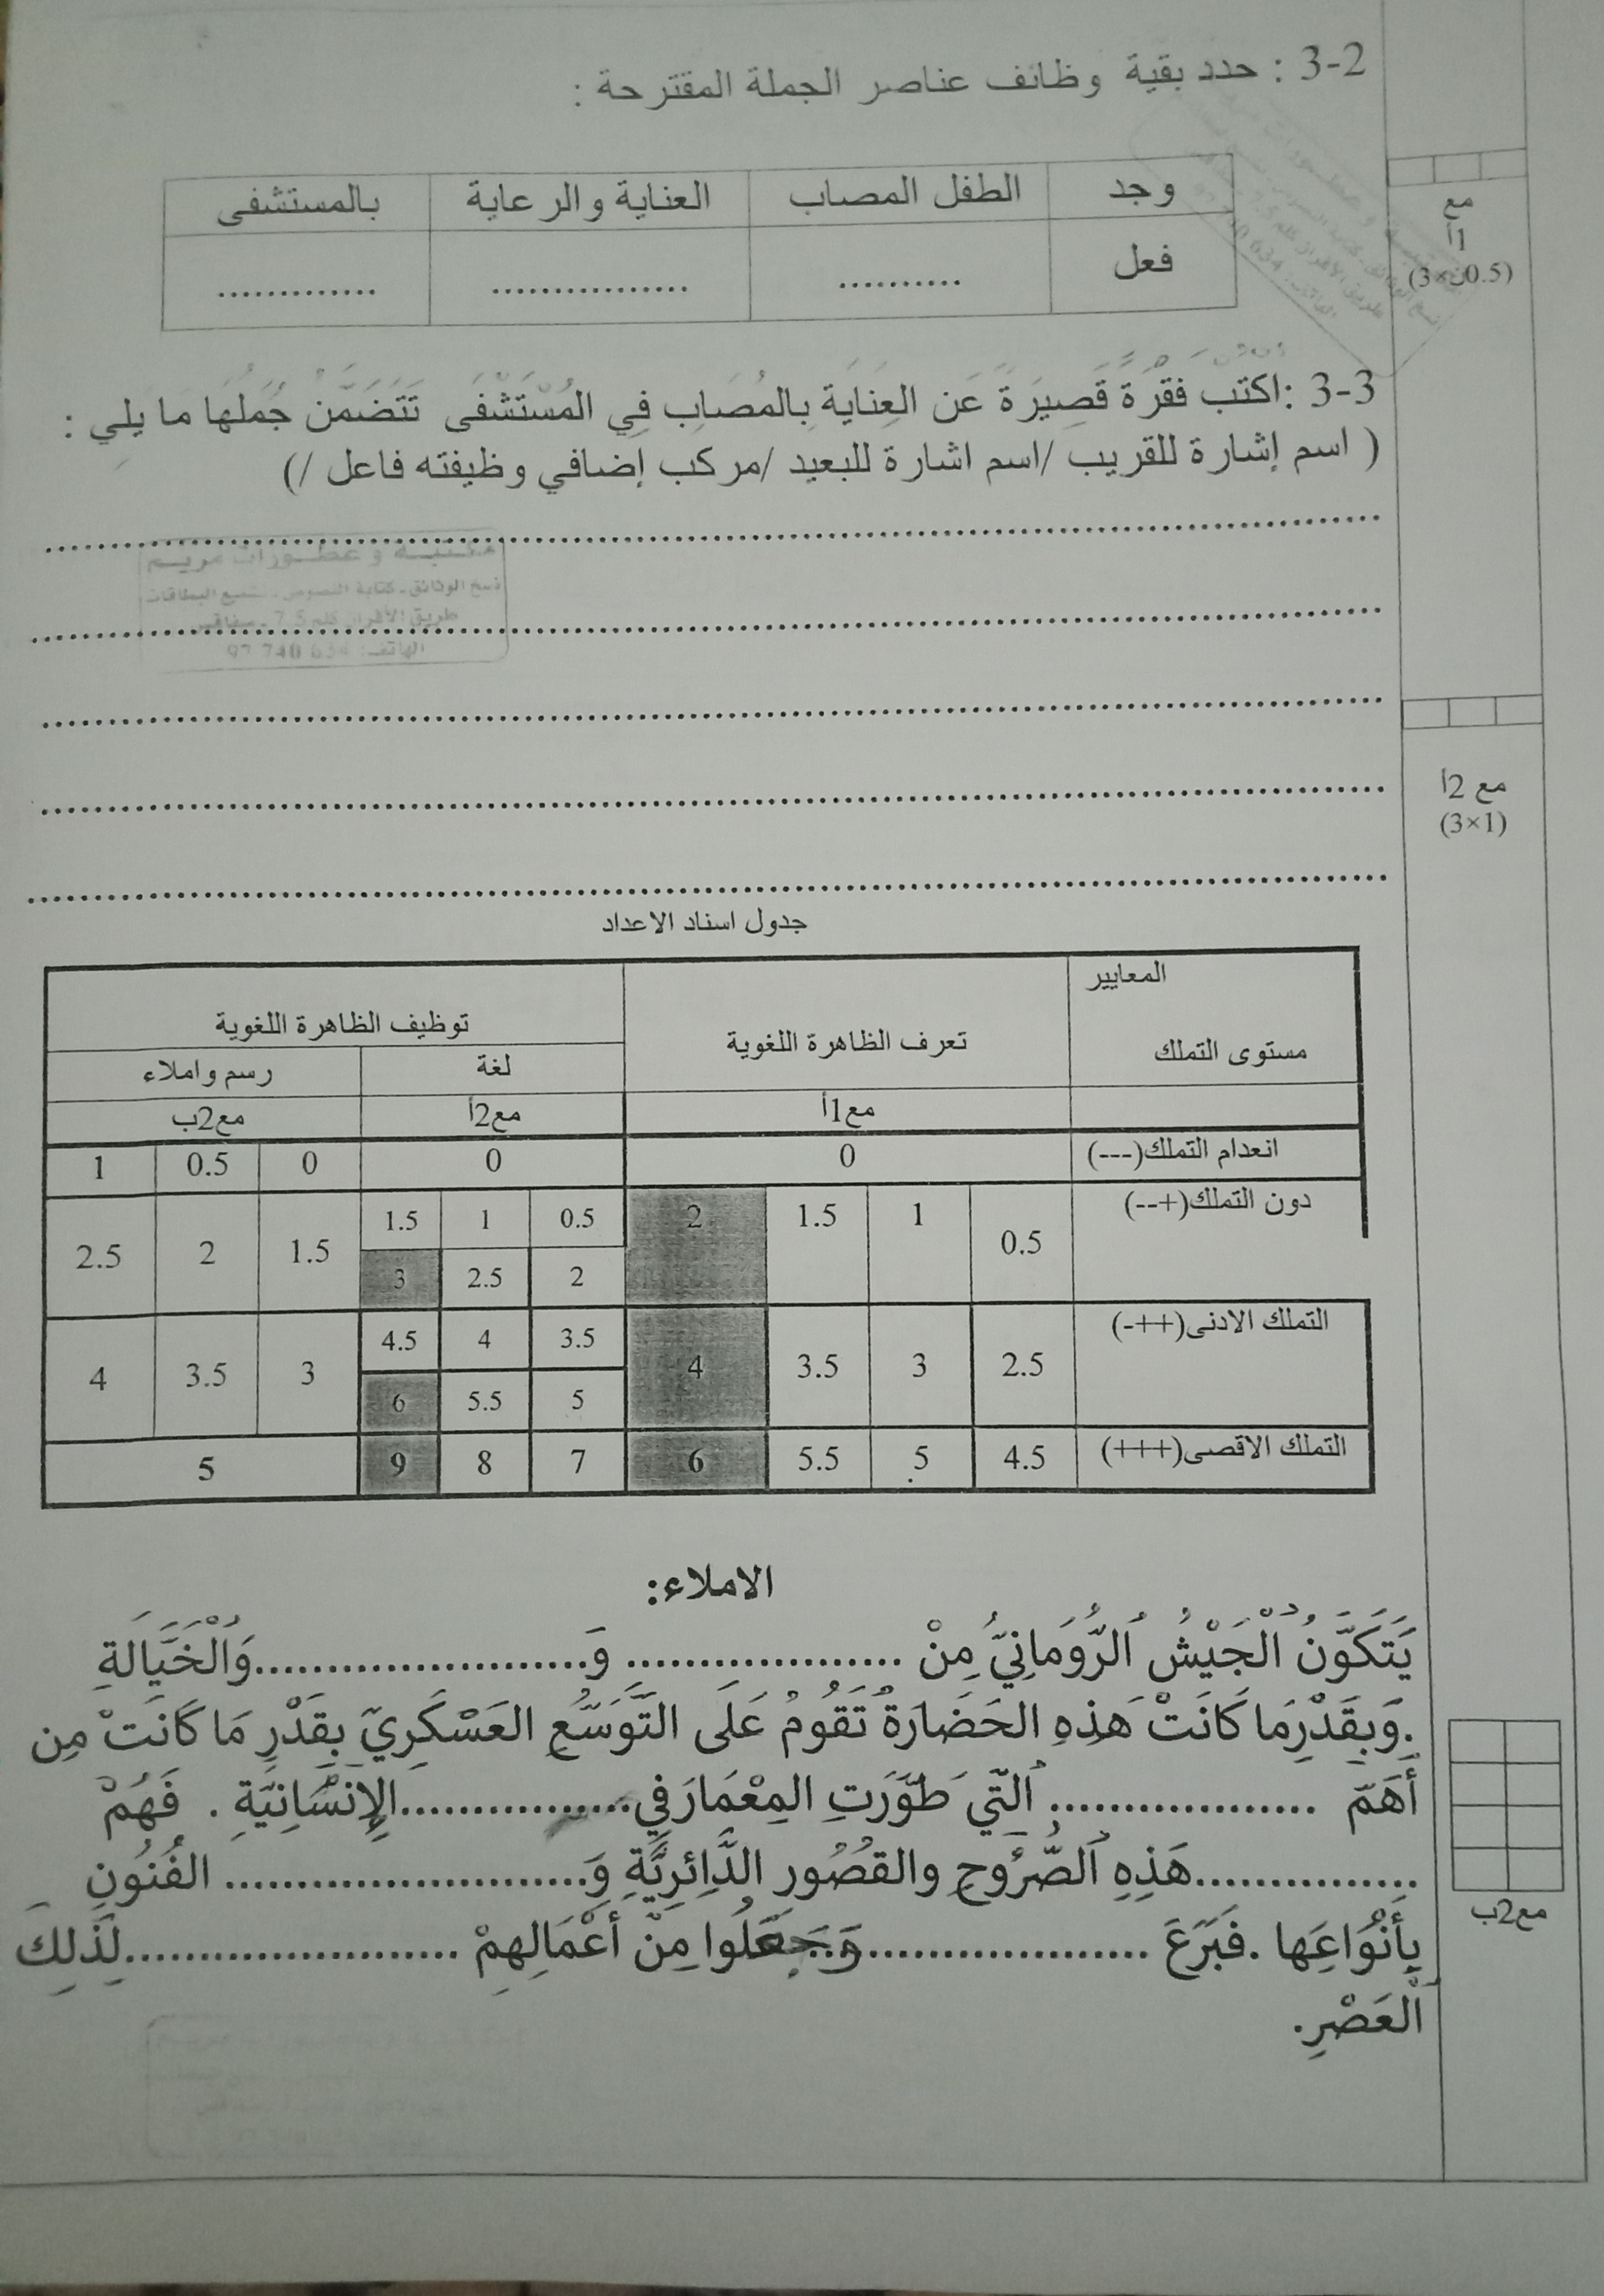 3-2 : حدد بقية وظائف عناصر الجملة المقترحة :
وجد الطفل المصاب العناية والرعاية بالمستشفى
فعل .......... ................ .............
مع
1أ
(3×0.5)
3-3 :اكتب فقرة قصيرة عن العناية بالمصاب في المستشفى تتضمن جملها ما يلي :
( اسم إشارة للقريب /اسم اشارة للبعيد /مركب إضافي وظيفته فاعل /)
مكتبة و عطورات مريم
نسخ الوثائق - كتابة النصوص - البطاقات
طريق الأفران كلم 7.5 - صفاقس
الهاتف: 97 740 634
مع 2أ
(3×1)
جدول اسناد الاعداد
المعايير
مستوى التملك تعرف الظاهرة اللغوية توظيف الظاهرة اللغوية
لغة رسم واملاء
مع1أ مع2أ مع2ب
انعدام التملك(---) 0 0 0 0.5 1
دون التملك(+--) 0.5 1 1.5 2 0.5 1 1.5 1.5 2 2.5
2 2.5 3
التملك الادنى(++-) 2.5 3 3.5 4 3.5 4 4.5 3 3.5 4
5 5.5 6
التملك الاقصى(+++) 4.5 5 5.5 6 7 8 9 5
الاملاء:
يَتَكَوَّنُ ٱلْجَيْشُ ٱلرُّومَانِيُّ مِنْ .................... وَ........................وَٱلْخَيَّالَةِ
.وَبِقَدْرِمَا كَانَتْ هَذِهِ الحَضَارَةُ تَقُومُ عَلَى التَّوَسُّعِ العَسْكَرِيِّ بِقَدْرِ مَا كَانَتْ مِن
أَهَمّ ................... ٱلَّتِي طَوَّرَتِ المِعْمَارَ فِي.................الإِنْسَانِيَّةِ . فَهُمْ
................هَذِهِ ٱلصُّرُوحِ والقُصُور الدَّائِرِيَّةِ وَ.......................... الفُنُونِ
بِأَنْوَاعِهَا .فَبَرَعَ .........................وَجَعَلُوا مِنْ أَعْمَالِهِمْ ........................لِذَلِكَ
ٱلعَصْرِ.
مع2ب